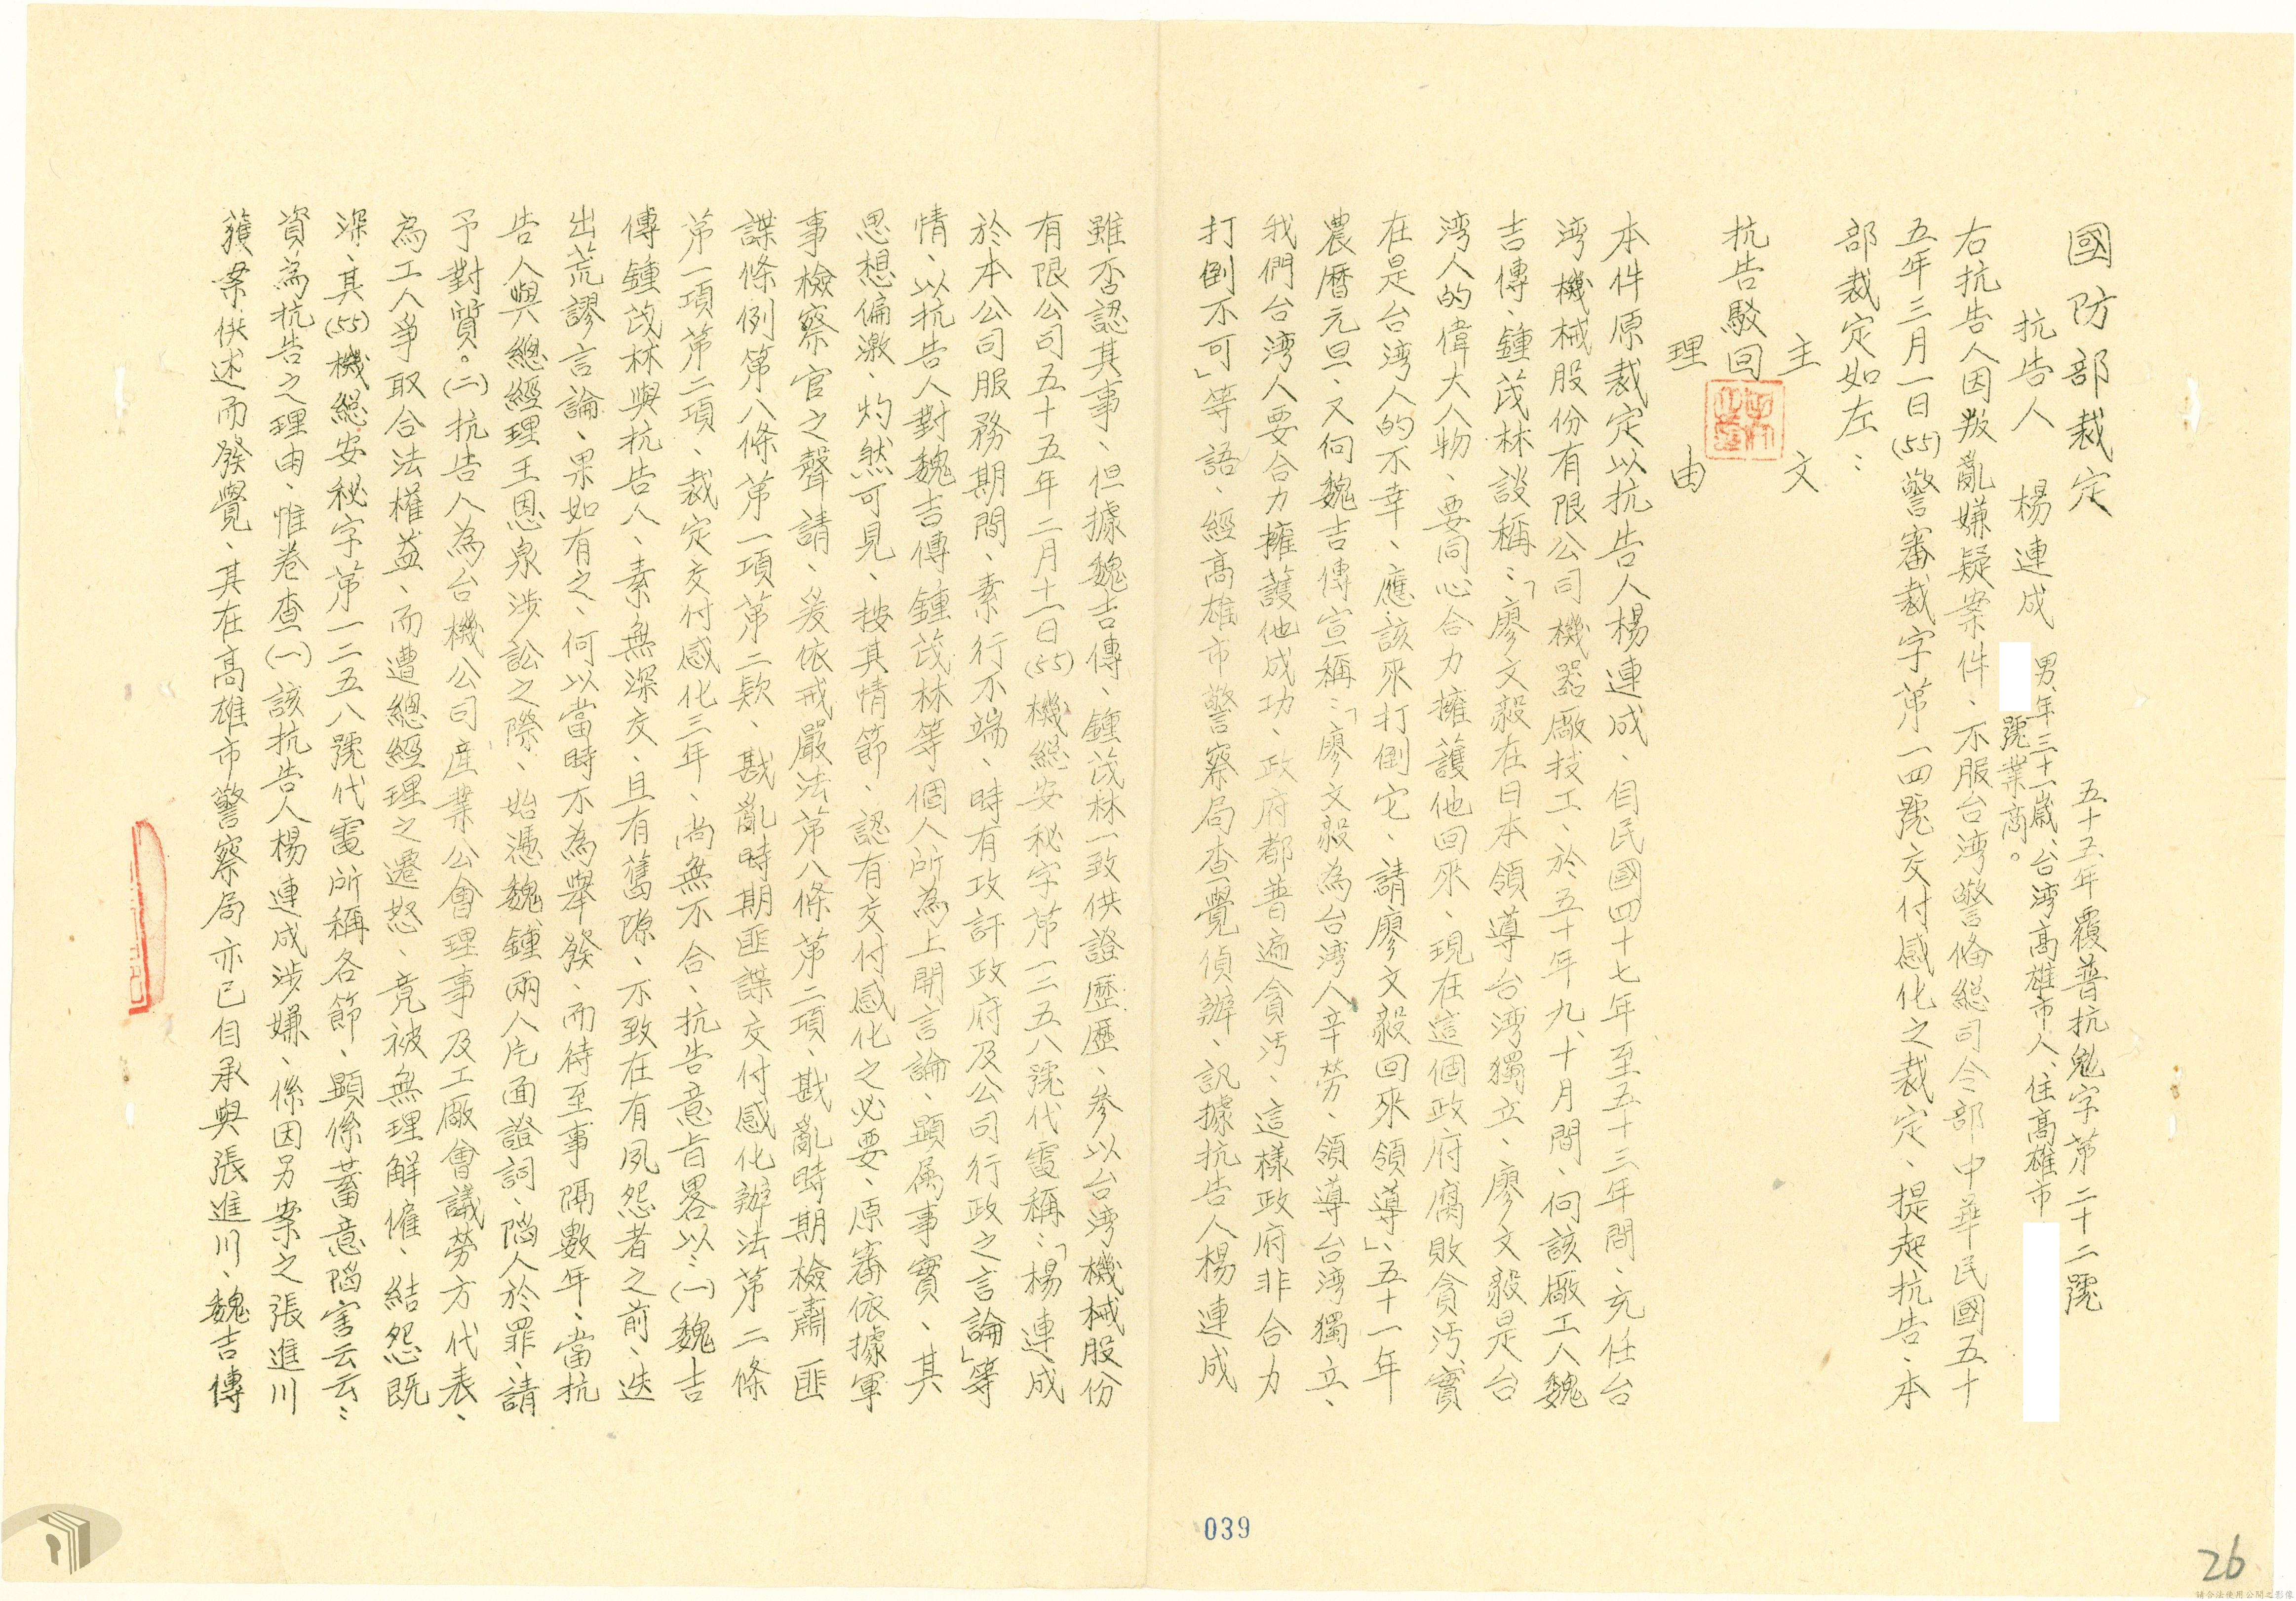 國防部裁定
五十五年覆普抗鬼字第二十二號
抗告人 楊連成 男、年三十一歲、台湾高雄市人、住高雄市
號業商。
右抗告人因叛亂嫌疑案件、不服台湾警俻總司令部中華民國五十
五年三月一日(55)警審裁字第一四號交付感化之裁定、提起抗告、本
部裁定如左：
主文
抗告駁回
理由
本件原裁定以抗告人楊連成、自民國四十七年至五十三年間、充任台
湾機械股份有限公司機器廠技工、於五十年九、十月間、向該廠工人魏
吉傳、鍾茂林談稱：「廖文毅在日本領導台湾獨立、廖文毅是台
湾人的偉大人物、要同心合力擁護他回來、現在這個政府腐敗貪污、實
在是台湾人的不幸、應該來打倒它、請廖文毅回來領導」、五十一年
農曆元旦、又向魏吉傳宣稱：「廖文毅為台湾人辛勞、領導台湾獨立、
我們台湾人要合力擁護他成功、政府都普遍貪污、這樣政府非合力
打倒不可」等語、經高雄市警察局查覺偵辦、訊據抗告人楊連成
雖否認其事、但據魏吉傳、鍾茂林一致供證歷歷、參以台湾機械股份
有限公司五十五年二月十一日(55)機總安秘字第一二五八號代電稱：「楊連成
於本公司服務期間、素行不端、時有攻訐政府及公司行政之言論」等
情、以抗告人對魏吉傳鍾茂林等個人所為上開言論、顯属事實、其
思想偏激、灼然可見、按其情節、認有交付感化之必要、原審依據軍
事檢察官之聲請、爰依戒嚴法第八條第二項、戡亂時期檢肅匪
諜條例第八條第一項第二款、戡亂時期匪諜交付感化辦法第二條
第一項第二項、裁定交付感化三年、尚無不合、抗告意旨畧以：(一)魏吉
傳鍾茂林與抗告人、素無深交、且有舊隙、不致在有夙怨者之前、迭
出荒謬言論、果如有之、何以當時不為舉發、而待至事隔數年、當抗
告人與總經理王恩泉涉訟之際、始憑魏鍾兩人片面證詞、陷人於罪、請
予對質。(二)抗告人為台機公司産業公會理事及工廠會議勞方代表、
為工人爭取合法權益、而遭總經理之遷怒、竟被無理解僱、結怨既
深、其(55)機總安秘字第一二五八號代電所稱各節、顯係蓄意陷害云云：
資為抗告之理由、惟卷查(一)該抗告人楊連成涉嫌、係因另案之張進川
獲案供述而發覺、其在高雄市警察局亦已自承與張進川、魏吉傳
039
26